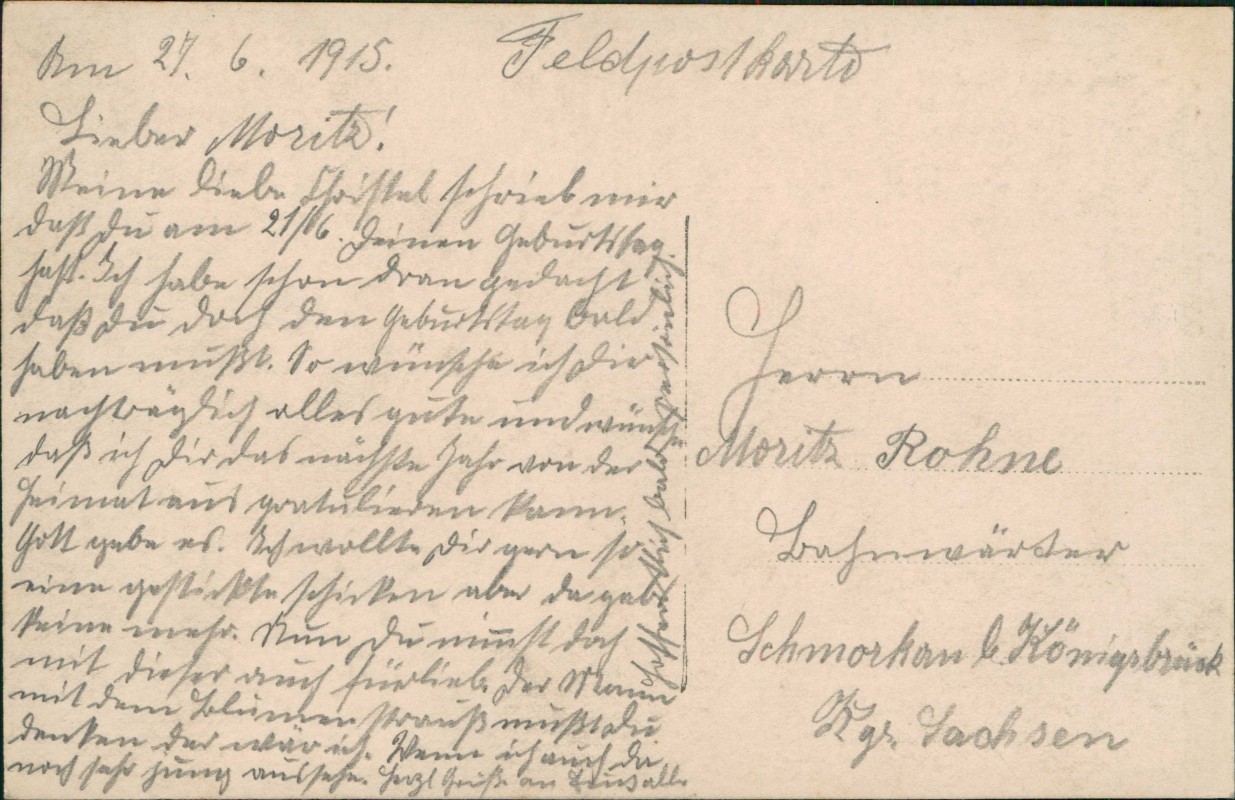 Am 27. 6. 1915.
Feldpostkarte
Lieber Moritz!
Meine liebe Christel schrieb mir
daß Du am 21/6. Deinen Geburtstag
hast. Ich habe schon dran gedacht
daß Du doch den Geburtstag bald
haben mußt. So wünsche ich Dir
nachträglich alles gute und wünsche
daß ich Dir das nächste Jahr von der
Heimat aus gratulieren kann.
Gott gebe es. Ich wollte Dir gern so
eine gestickte schicken aber da gabs
keine mehr. Nun Du nimmst doch
mit dieser auch fürlieb. Der Mann
mit dem Blumenstrauß mußt Du
denken der wär ich. Wenn ich auch da
noch sehr jung aussehe. Herzl Grüße an Euch alle
hoffentlich bald persönlich.
Herrn
Moritz Rohne
Bahnwärter
Schmorkau b. Königsbrück
Kgr. Sachsen